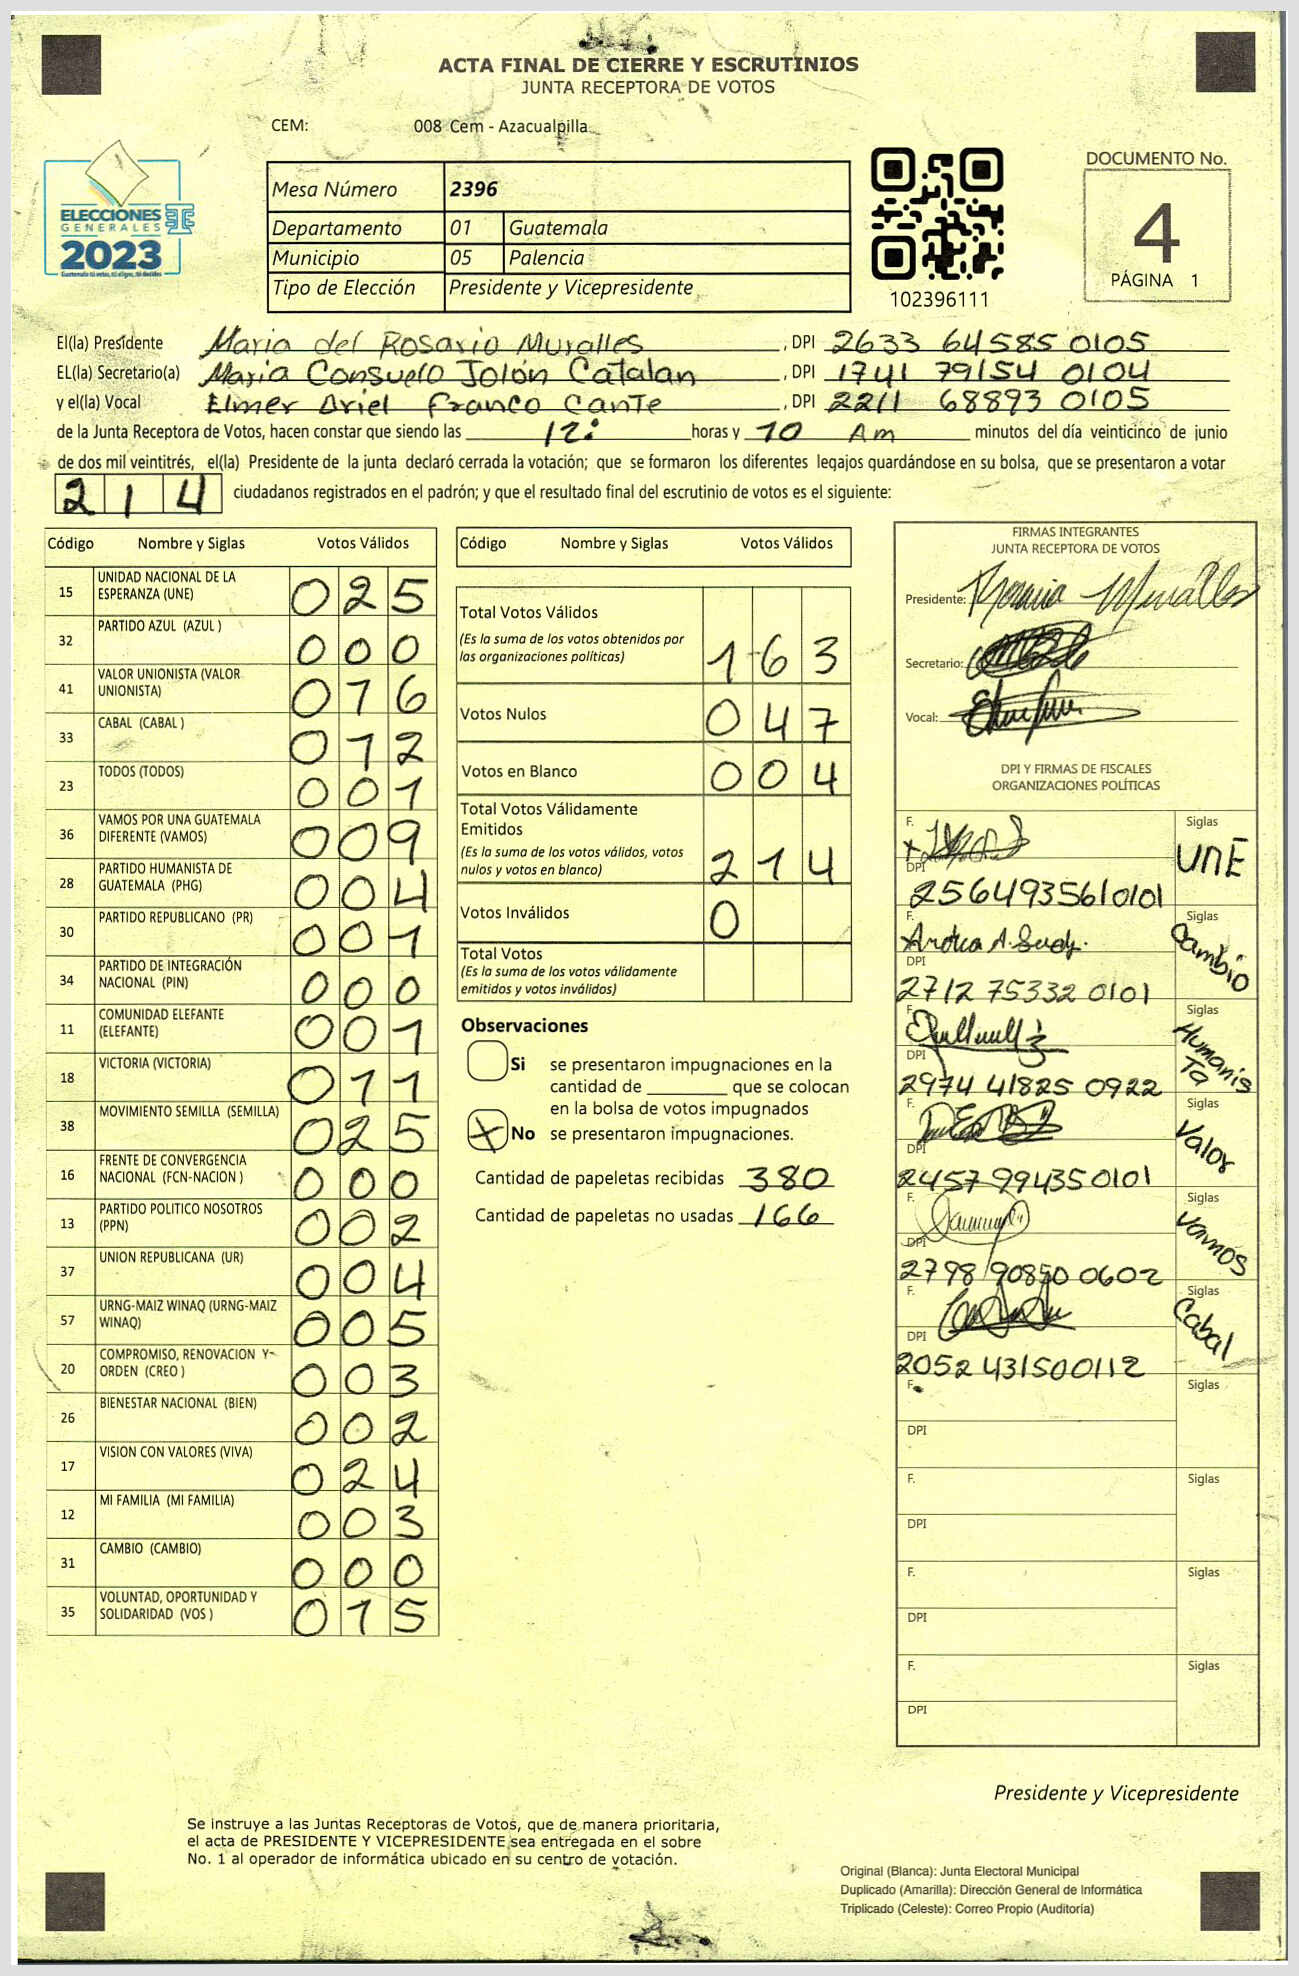 ACTA FINAL DE CIERRE Y ESCRUTINIOS
JUNTA RECEPTORA DE VOTOS
CEM: 008 Cem - Azacualpilla
ELECCIONES
GENERALES
2023
Guatemala tú votas, tú eliges, tú decides
Mesa Número 2396
Departamento 01 Guatemala
Municipio 05 Palencia
Tipo de Elección Presidente y Vicepresidente
102396111
DOCUMENTO No.
4
PÁGINA 1
El(la) Presidente Maria del Rosario Muralles, DPI 2633 64585 0105
EL(la) Secretario(a) Maria Consuelo Jolón Catalan, DPI 1741 79154 0104
y el(la) Vocal Elmer Ariel Franco Cante, DPI 2211 68893 0105
de la Junta Receptora de Votos, hacen constar que siendo las 12: horas y 10 Am minutos del día veinticinco de junio
de dos mil veintitrés, el(la) Presidente de la junta declaró cerrada la votación; que se formaron los diferentes legajos guardándose en su bolsa, que se presentaron a votar
214 ciudadanos registrados en el padrón; y que el resultado final del escrutinio de votos es el siguiente:
Código Nombre y Siglas Votos Válidos
15 UNIDAD NACIONAL DE LA ESPERANZA (UNE) 025
32 PARTIDO AZUL (AZUL ) 000
41 VALOR UNIONISTA (VALOR UNIONISTA) 016
33 CABAL (CABAL ) 012
23 TODOS (TODOS) 001
36 VAMOS POR UNA GUATEMALA DIFERENTE (VAMOS) 009
28 PARTIDO HUMANISTA DE GUATEMALA (PHG) 004
30 PARTIDO REPUBLICANO (PR) 001
34 PARTIDO DE INTEGRACIÓN NACIONAL (PIN) 000
11 COMUNIDAD ELEFANTE (ELEFANTE) 001
18 VICTORIA (VICTORIA) 011
38 MOVIMIENTO SEMILLA (SEMILLA) 025
16 FRENTE DE CONVERGENCIA NACIONAL (FCN-NACION ) 000
13 PARTIDO POLITICO NOSOTROS (PPN) 002
37 UNION REPUBLICANA (UR) 004
57 URNG-MAIZ WINAQ (URNG-MAIZ WINAQ) 005
20 COMPROMISO, RENOVACION Y ORDEN (CREO ) 003
26 BIENESTAR NACIONAL (BIEN) 002
17 VISION CON VALORES (VIVA) 024
12 MI FAMILIA (MI FAMILIA) 003
31 CAMBIO (CAMBIO) 000
35 VOLUNTAD, OPORTUNIDAD Y SOLIDARIDAD (VOS ) 015
Código Nombre y Siglas Votos Válidos
Total Votos Válidos
(Es la suma de los votos obtenidos por
las organizaciones políticas) 163
Votos Nulos 047
Votos en Blanco 004
Total Votos Válidamente
Emitidos
(Es la suma de los votos válidos, votos
nulos y votos en blanco) 214
Votos Inválidos 0
Total Votos
(Es la suma de los votos válidamente
emitidos y votos inválidos)
Observaciones
Si se presentaron impugnaciones en la
cantidad de ________ que se colocan
en la bolsa de votos impugnados
X No se presentaron impugnaciones.
Cantidad de papeletas recibidas 380
Cantidad de papeletas no usadas 166
FIRMAS INTEGRANTES
JUNTA RECEPTORA DE VOTOS
Presidente: Muralles
Secretario:
Vocal:
DPI Y FIRMAS DE FISCALES
ORGANIZACIONES POLÍTICAS
F. Siglas UNE
DPI 2564935610101
F. Siglas Cambio
DPI 2712 75332 0101
F. Siglas Humanista
DPI 2974 41825 0922
F. Siglas Valor
DPI 2457 99435 0101
F. Siglas Vamos
DPI 2798 90850 0602
F. Siglas Cabal
DPI 2052 431500112
F. Siglas
DPI
F. Siglas
DPI
F. Siglas
DPI
F. Siglas
DPI
Presidente y Vicepresidente
Se instruye a las Juntas Receptoras de Votos, que de manera prioritaria,
el acta de PRESIDENTE Y VICEPRESIDENTE sea entregada en el sobre
No. 1 al operador de informática ubicado en su centro de votación.
Original (Blanca): Junta Electoral Municipal
Duplicado (Amarilla): Dirección General de Informática
Triplicado (Celeste): Correo Propio (Auditoría)